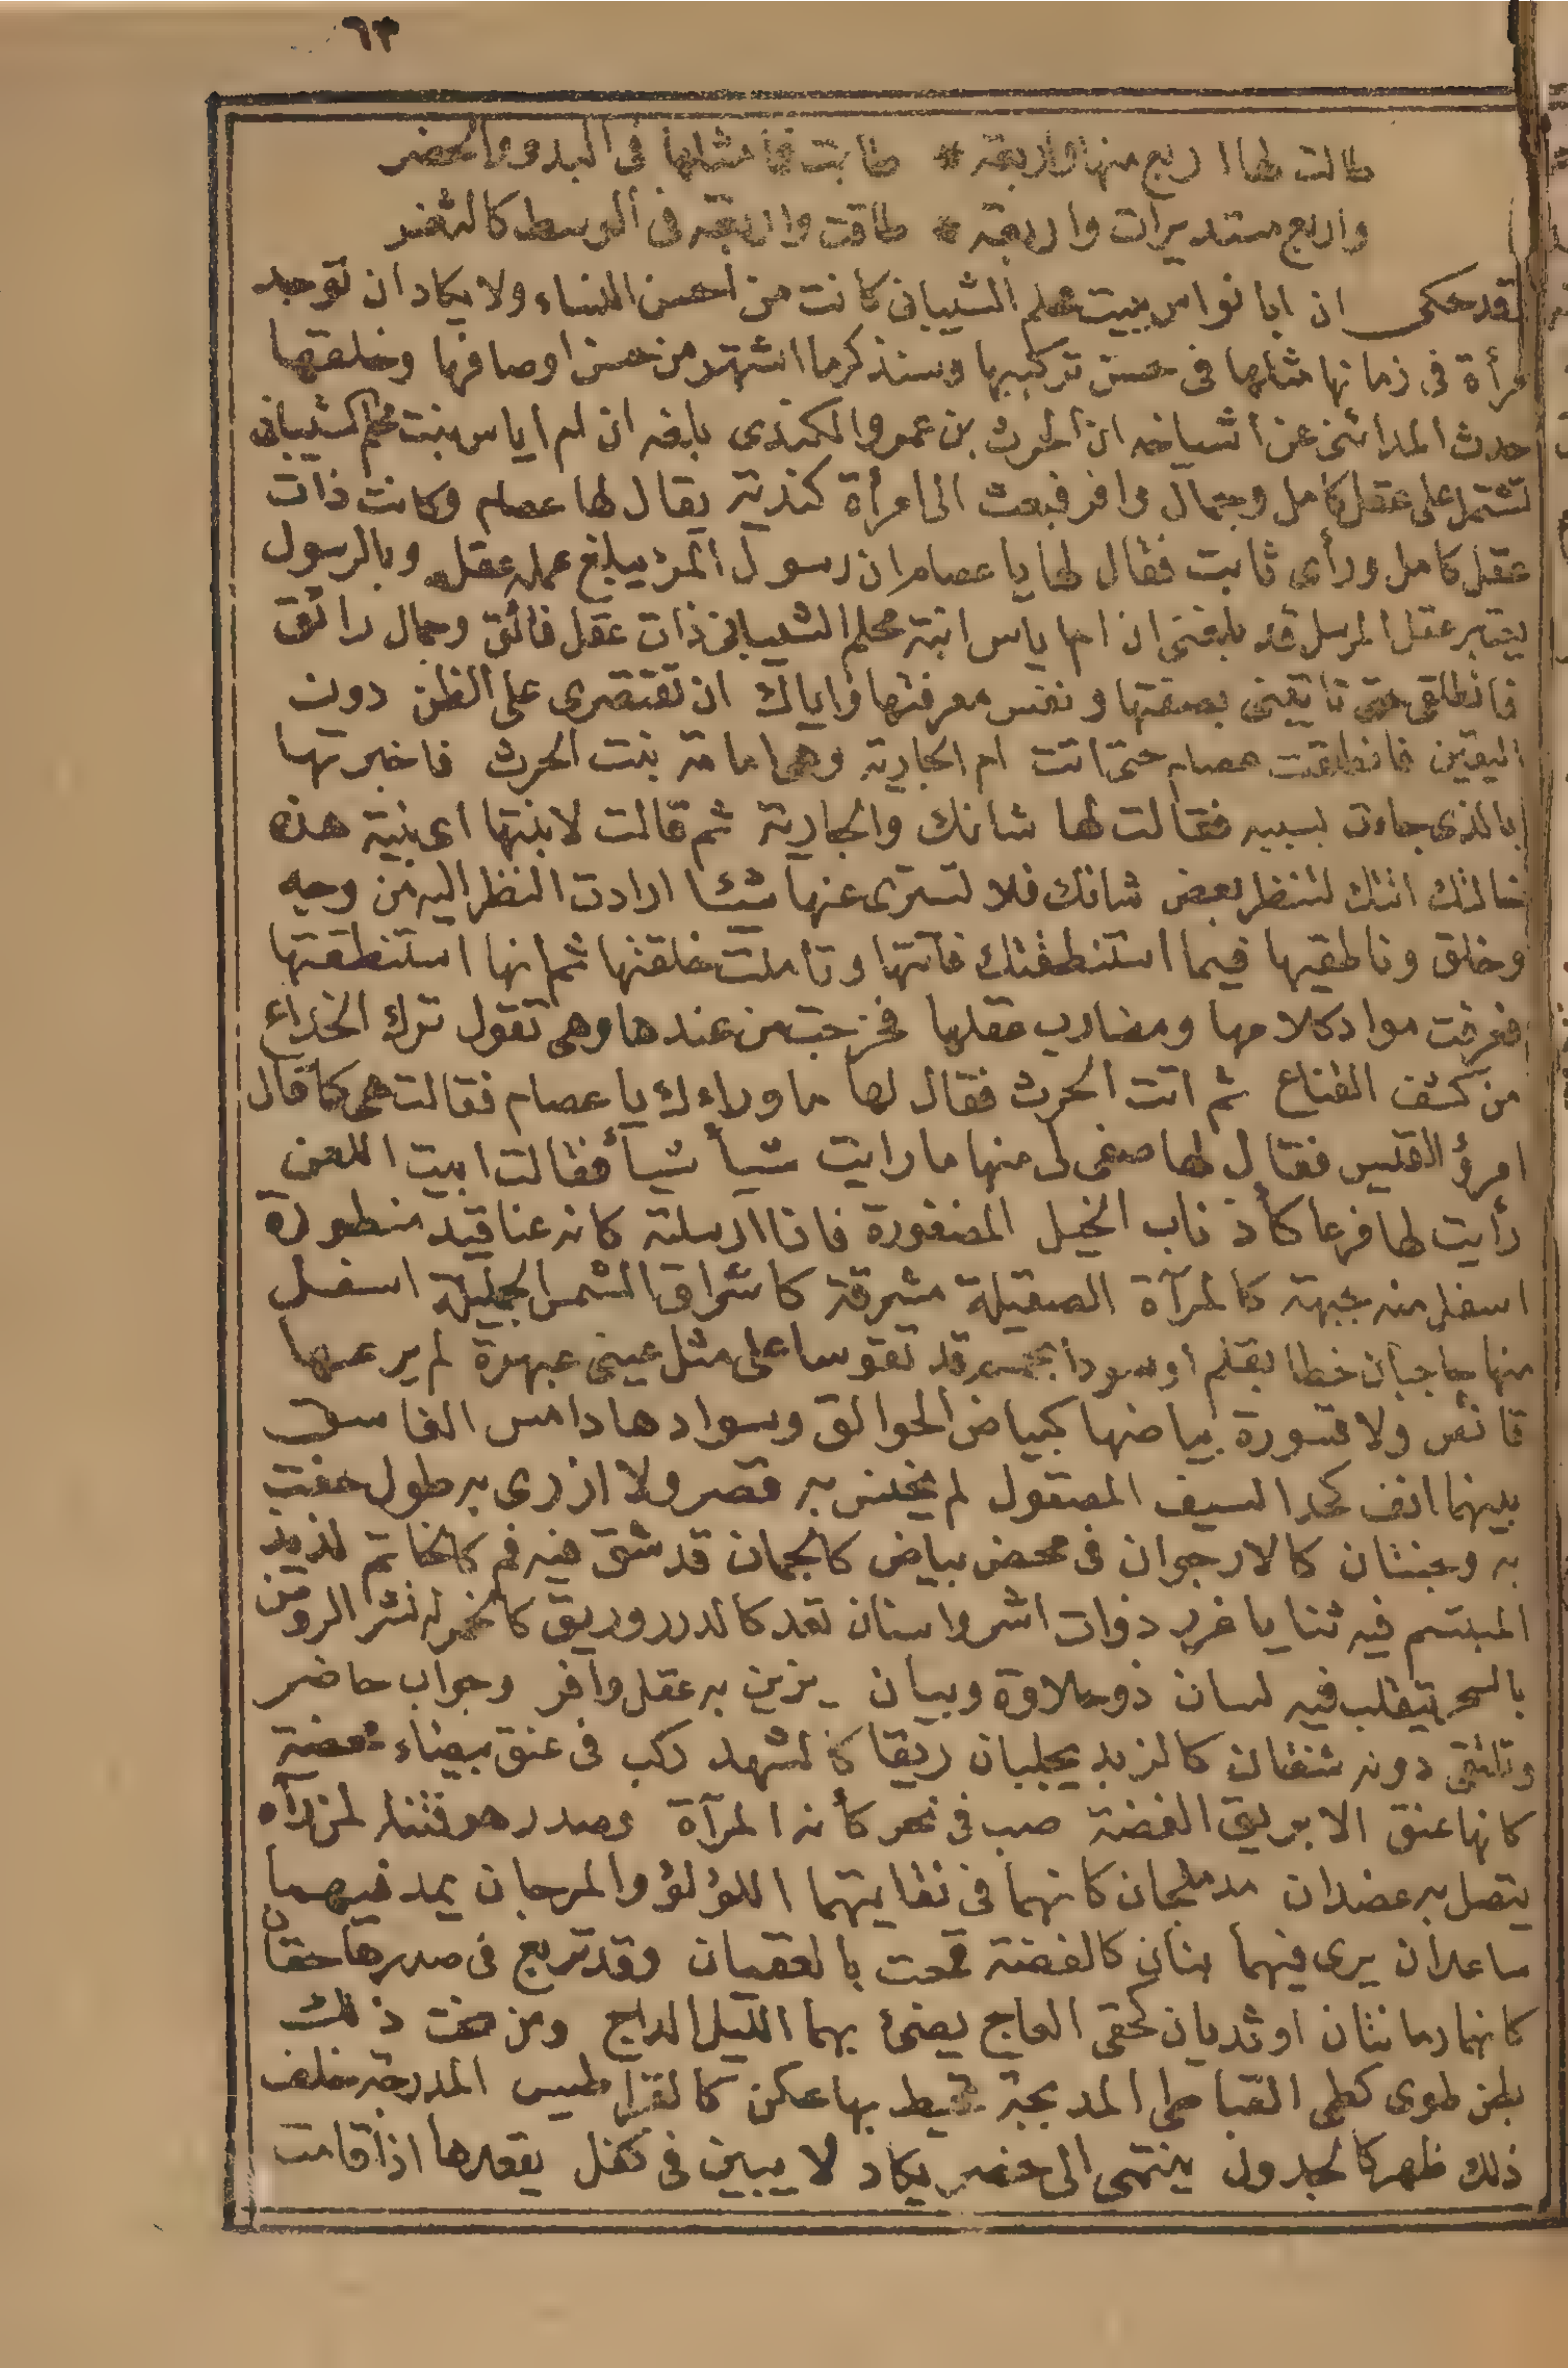 ٦٣
طالت لها اربع منها واربعة * طابت فما مثلها فى البدو والحضر
واربع مستديرات واربعة * طاقت واربعة فى الوسط كالثغر
قد حكى ان ابا نواس ببيت محلم الشيبانى كانت من احسن النساء ولا يكاد ان توجد
مرأة فى زمانها مثلها فى حسن تركيبها وسنذكر ما اشتهر من حسن اوصافها وخلقها
حدث المدائنى عن اشياخه ان الحرث بن عمرو الكندى بلغه ان ام اياس بنت محلم الشيبانى
تشتمل على عقل كامل وجمال وافر فبعث الى امرأة كندية يقال لها عصام وكانت ذات
عقل كامل ورأى ثابت فقال لها يا عصام ان رسول المرء يبلغ عمله عقله وبالرسول
يعتبر عقل المرسل قد بلغنى ان ام ياس ابنة محلم الشيبانى ذات عقل فائق وجمال رائق
فانطلقى حتى تاتينى بصفتها ونفس معرفتها واياك ان تقتصرى على الظن دون
اليقين فانطلقت عصام حتى اتت ام الجارية وهى امامة بنت الحرث فاخبرتها
بالذى جاءت بسببه فقالت لها شانك والجارية ثم قالت لابنتها اى بنية هذه
خالتك اتتك لتنظر بعض شانك فلا تسترى عنها شئا ارادت النظر اليه من وجه
وخلق وناطقيها فيما استنطقتك فاتتها وتأملت خلقتها ثم انها استنطقتها
فعرفت مواد كلامها ومضارب عقلها فخرجت من عندها وهى تقول ترك الخداع
من كشف القناع ثم اتت الحرث فقال لها ما وراءك يا عصام فقالت هى كما قال
امرؤ القيس فقال لها صفى لى منها ما رايت شيأ شيأ فقالت ابيت اللعن
رأيت لها فرعا كأذناب الخيل المضفورة فاذا ارسلته كانه عناقيد منطورة
اسفل منه جبهة كالمرآة الصقيلة مشرقة كاشراق الشمس الجميلة اسفل
منها حاجبان خطا بقلم او سودا بحمم قد تقوسا على مثل عينى عبهرة لم يرعها
قانص ولا قسورة بياضها كبياض الحوالق وسوادها دامس الغاسق
بينهما انف كحد السيف المصقول لم يخنس به قصر ولا ازرى به طول حفت
به وجنتان كالارجوان فى محض بياض كالجمان قد شق فيه فم كالخاتم لذيذ
المبتسم فيه ثنايا غرر ذوات اشر واسنان تعد كالدرر وريق كالخمر له نشر الروض
بالسحر يتقلب فيه لسان ذو حلاوة وبيان يزين به عقل وافر وجواب حاضر
وتلتقى دونه شفتان كالزبد يجلبان ريقا كالشهد ركب فى عنق بيضاء محضة
كانها عنق الابريق الفضة صب فى نحر كأنه المرآة وصدر هو فتنة لمن رآه
يتصل به عضدان مدملجان كانهما فى نقايتهما اللؤلؤ والمرجان يمد فيهما
ساعدان يرى فيهما بنان كالفضة قمعت بالعقيان وقد تربع فى صدرها حقان
كانهما رمانتان او ثديان كحقى العاج يضئ بهما الليل الداج ومن تحت ذلك
بطن طوى كطى القباطى المدبجة تحيط بها عكن كالقراطيس المدرجة خلف
ذلك ظهر كالجدول ينتهى الى خصر يكاد لا يبين فى كفل يقعدها اذا قامت